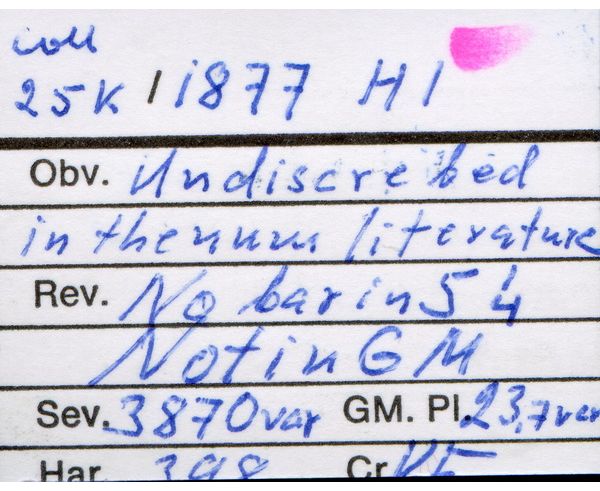 coll
25K / 1877 HI
Obv. Undiscrebed
in the num literature
Rev. No bar in 54
Not in GM
Sev. 3870 var GM. Pl. 23,7 var
Har. 398 Cr. VF